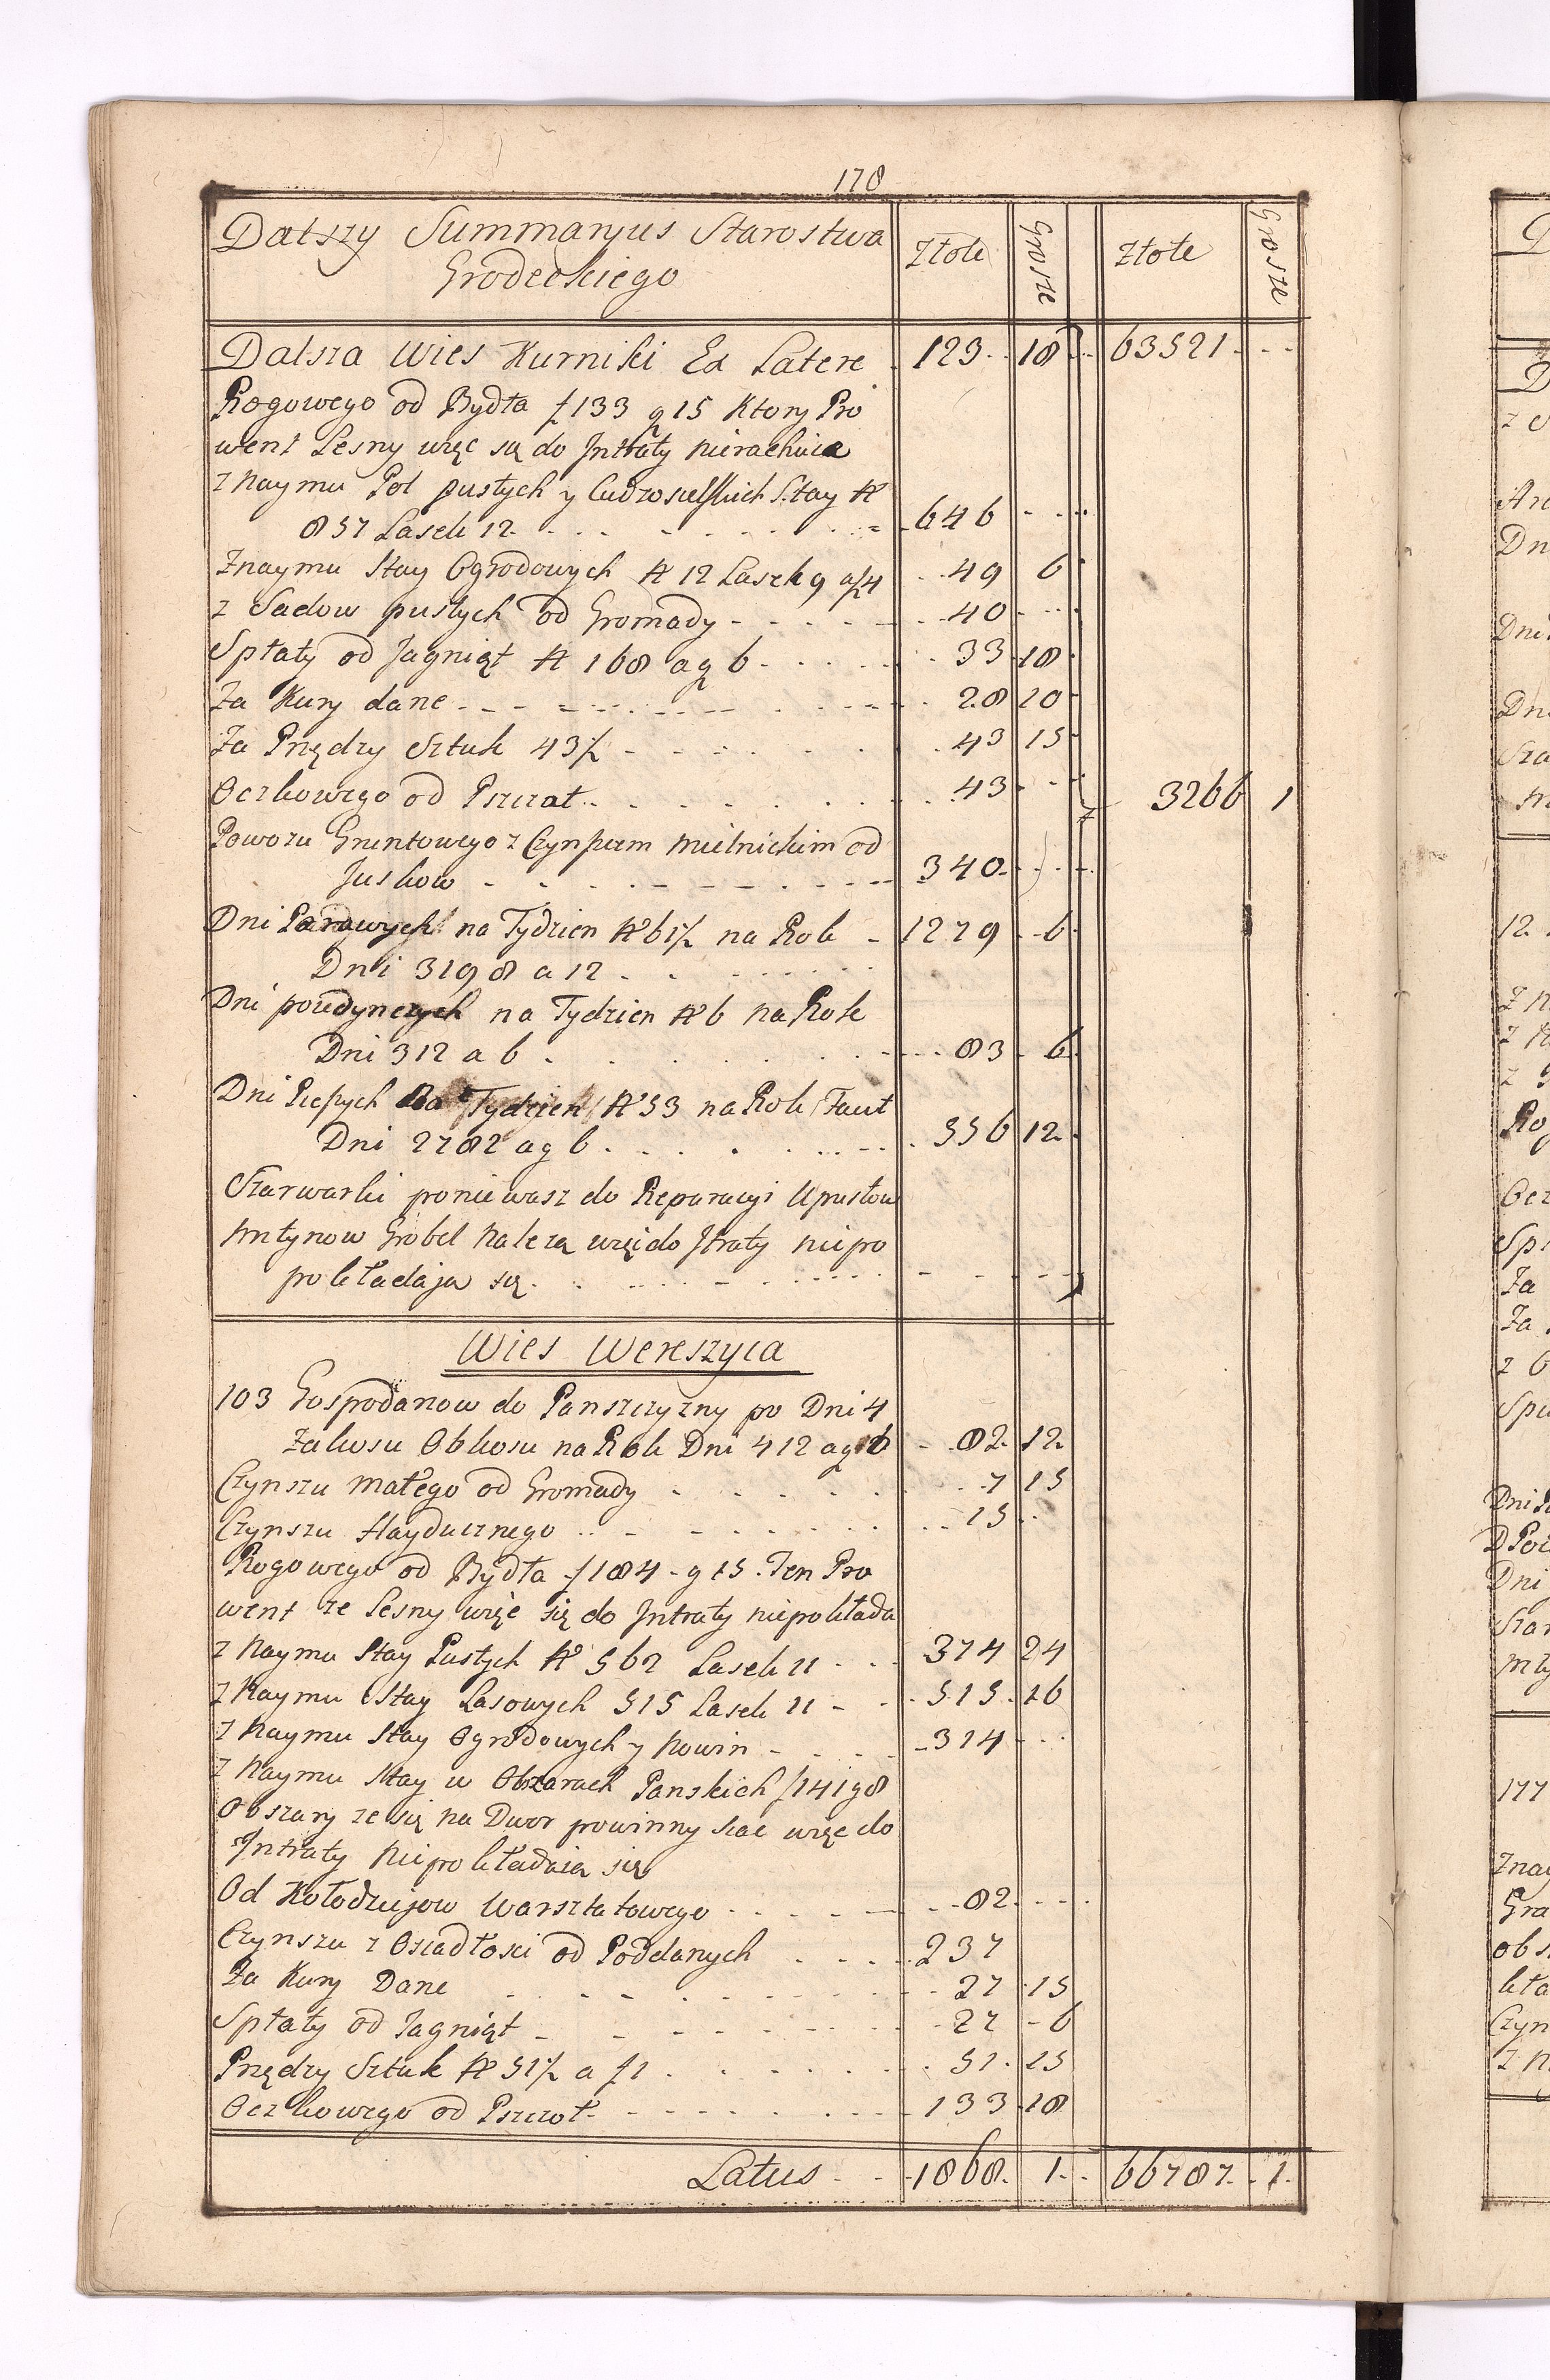 178
Dalszy Summaryus Starostwa Złote Grosze Złote Grosze
Grodeckiego
Dalsza Wies Kurniki Ex Latere 123 18 63521
Rogowego od Bydła f 133 g 15 Ktory Pro
went Lesny więc się do Intraty nierachuie
z Naymu Pol pustych y Cudzosielskich Stay N
857 Lasek 12 646
Znaymu Stay Ogrodowych N 12 Lasek 9 a f 4 49 6
z Sadow pustych od Gromady 40
Spłaty od Jagniąt N 168 a g 6 33 18
Za Kury dane 28 20
Za Przędzy Sztuk 43½ 43 15
Oczkowego od Pszczoł 43 3266 1
Powozu Gruntowego z Czynszem mielnickim od
Juskow 340
Dni Parowych na Tydzien N 61½ na Rok 1279 6
Dni 3198 a 12
Dni poiedynczych na Tydzien N 6 na Rok
Dni 312 a 6 83 6
Dni Pieszych Na Tydzien N 53 na Rok Facit
Dni 2782 a g 6 556 12
Szarwarki poniewasz do Reparacyi Upustow
młynow Grobel należą więc do Itraty niepo
pokładaja się
Wies Wereszyca
103 Gospodarzow do Panszczyzny po Dni 4
Zakosu Obkosu na Rok Dni 412 a g 6 82 12
Czynszu małego od Gromady 7 15
Czynszu Hayducznego 15
Rogowego od Bydła f 184 g 15 Ten Pro
went ze Lesny więc się do Intraty niepokłada
z Naymu Stay Pustych N 562 Lasek 11 374 24
z Naymu Stay Lasowych 515 Lasek 11 515 16
z Naymu Stay Ogrodowych y Nowin 314
z Naymu Stay w Obszarach Panskich f 141 g 8
Obszary ze się na Dwor powinny siac więc do
Intraty Niepokładaią się
Od Kołodzieiow Warsztatowego 82
Czynszu z Osiadłosci od Poddanych 237
Za Kury Dane 27 15
Spłaty od Jagniąt 27 6
Przędzy Sztuk N 51½ a f 1 51 15
Oczkowego od Pszczoł 133 18
Latus 1868 1 66787 1